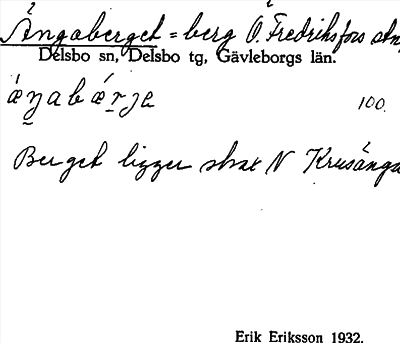 Ängaberget = berg Ö. Fredriksfors stn,
Delsbo sn, Delsbo tg, Gävleborgs län.
100.
Berget ligger strax N Krusänga
Erik Eriksson 1932.